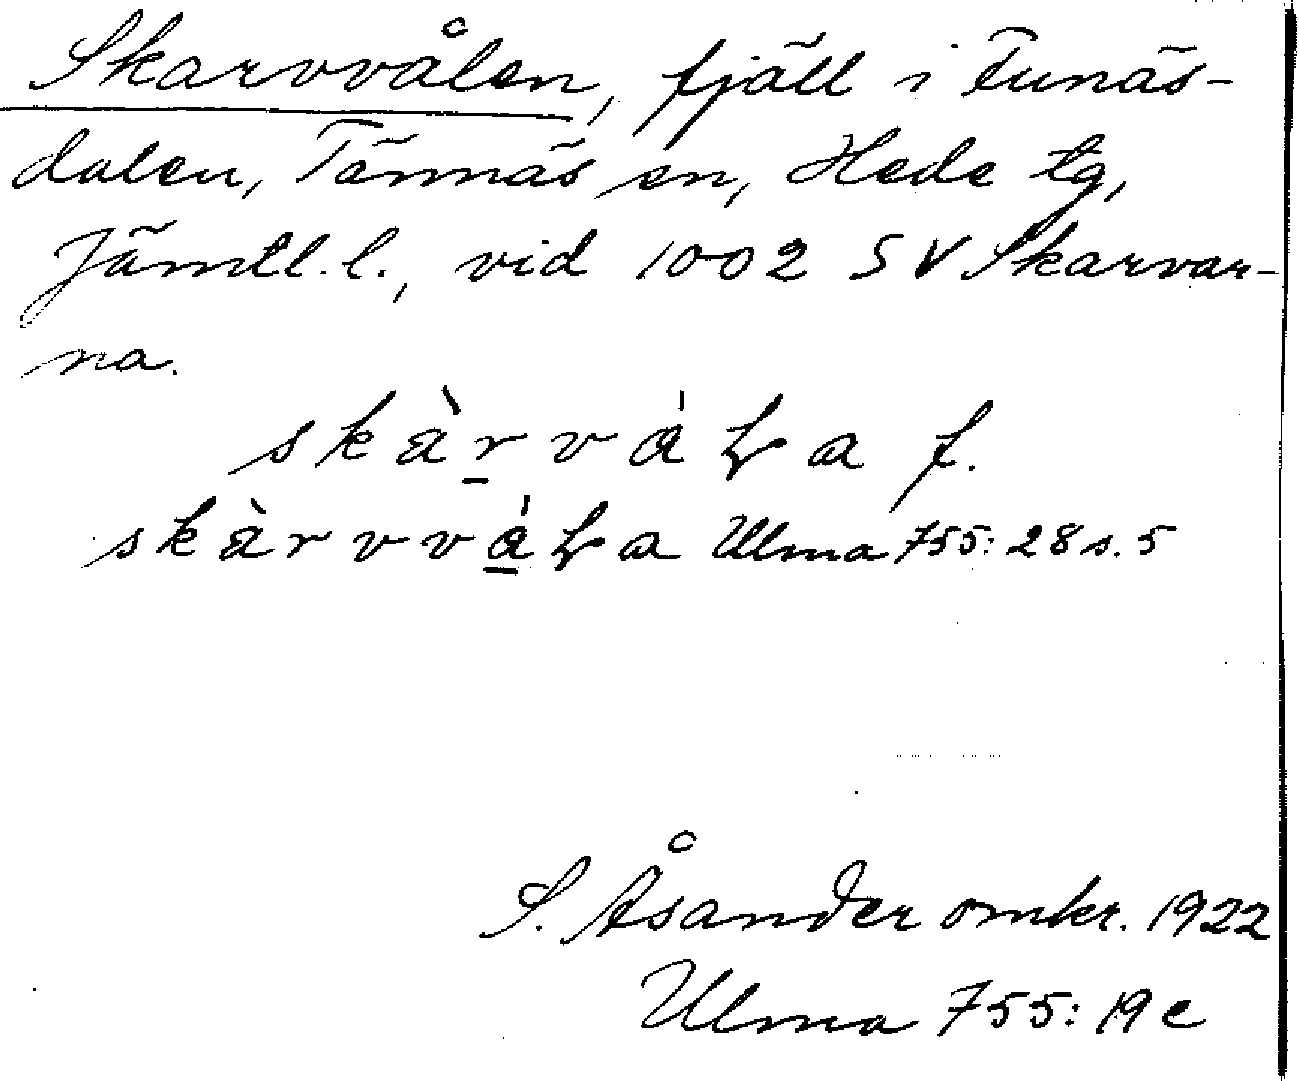 Skarvvålen, fjäll i Funäs-
dalen, Tännäs sn, Hede tg,
Jämtl. l., vid 1002 SV Skarvar-
na.
skàrválа f.
skàrvválа Ulma 755: 28 s. 5
S. Åsander omkr. 1922
Ulma 755: 19 c